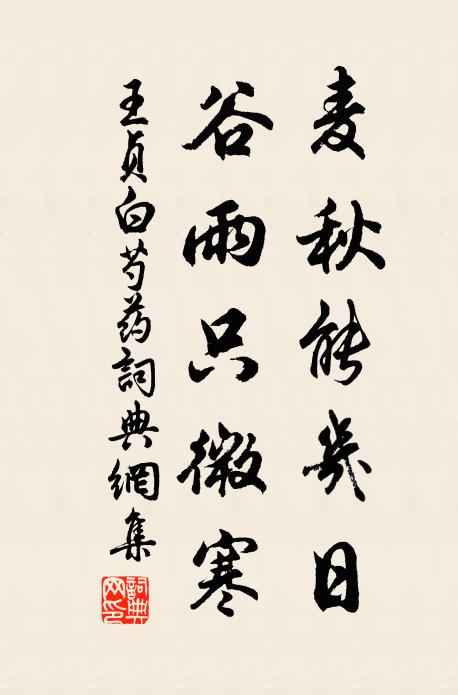 麦秋能幾日
谷雨只微寒
王貞白芍药詞典網集
詞典网印